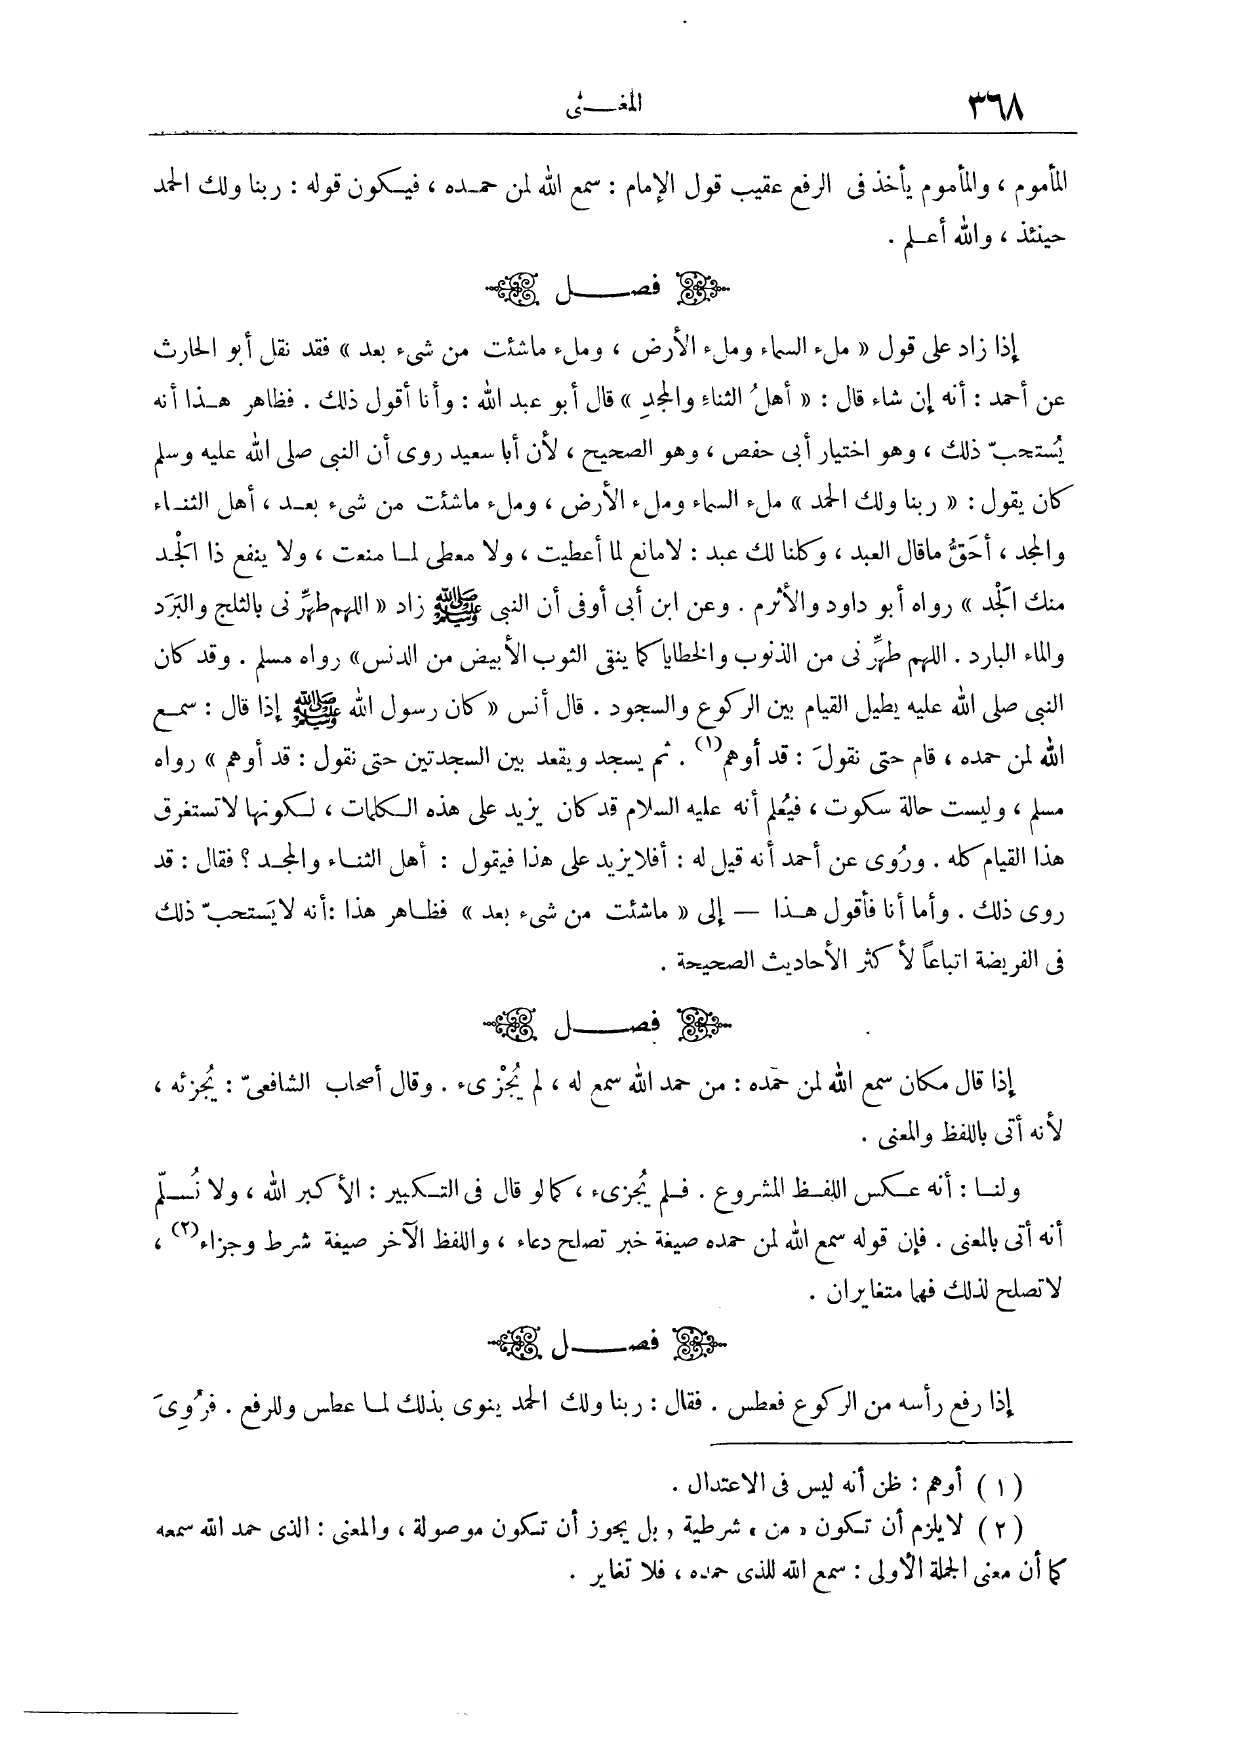 ٣٦٨
المغنى
المأموم ، والمأموم يأخذ فى الرفع عقيب قول الإمام : سمع الله لمن حمده ، فيكون قوله : ربنا ولك الحمد
حينئذ ، والله أعلم .
فصل
إذا زاد على قول « ملء السماء وملء الأرض ، وملء ماشئت من شىء بعد » فقد نقل أبو الحارث
عن أحمد : أنه إن شاء قال : « أهلُ الثناءِ والمجدِ » قال أبو عبد الله : وأنا أقول ذلك . فظاهر هذا أنه
يُستحبّ ذلك ، وهو اختيار أبى حفص ، وهو الصحيح ، لأن أبا سعيد روى أن النبى صلى الله عليه وسلم
كان يقول : « ربنا ولك الحمد » ملء السماء وملء الأرض ، وملء ماشئت من شىء بعد ، أهل الثناء
والمجد ، أحَقُّ ماقال العبد ، وكلنا لك عبد : لامانع لما أعطيت ، ولا معطى لما منعت ، ولا ينفع ذا الْجد
منك الْجد » رواه أبو داود والأثرم . وعن ابن أبى أوفى أن النبى ﷺ زاد « اللهم طهِّرنى بالثلج والبَرَد
والماء البارد . اللهم طهِّرنى من الذنوب والخطايا كما ينقى الثوب الأبيض من الدنس» رواه مسلم . وقد كان
النبى صلى الله عليه يطيل القيام بين الركوع والسجود . قال أنس « كان رسول الله ﷺ إذا قال : سمع
الله لمن حمده ، قام حتى نقولَ : قد أوهم(١) . ثم يسجد ويقعد بين السجدتين حتى نقول : قد أوهم » رواه
مسلم ، وليست حالة سكوت ، فيُعلم أنه عليه السلام قد كان يزيد على هذه الكلمات ، لكونها لاتستغرق
هذا القيام كله . ورُوى عن أحمد أنه قيل له : أفلا يزيد على هذا فيقول : أهل الثناء والمجد ؟ فقال : قد
روى ذلك . وأما أنا فأقول هذا — إلى « ماشئت من شىء بعد » فظاهر هذا :أنه لايَستحبّ ذلك
فى الفريضة اتباعاً لأكثر الأحاديث الصحيحة .
فصل
إذا قال مكان سمع الله لمن حمَده : من حمد الله سمع له ، لم يُجْزىء . وقال أصحاب الشافعىّ : يُجزئه ،
لأنه أتى باللفظ والمعنى .
ولنا : أنه عكس اللفظ المشروع . فلم يُجزىء ، كما لو قال فى التكبير : الأكبر الله ، ولا نُسلّم
أنه أتى بالمعنى . فإن قوله سمع الله لمن حمده صيغة خبر تصلح دعاء ، واللفظ الآخر صيغة شرط وجزاء(٢) ،
لاتصلح لذلك فهما متغايران .
فصل
إذا رفع رأسه من الركوع فعطس . فقال : ربنا ولك الحمد ينوى بذلك لما عطس وللرفع . فرُوِىَ
(١) أوهم : ظن أنه ليس فى الاعتدال .
(٢) لايلزم أن تكون «من» شرطية , بل يجوز أن تكون موصولة ، والمعنى : الذى حمد الله سمعه
كما أن معنى الجملة الأولى : سمع الله للذى حمده ، فلا تغاير .